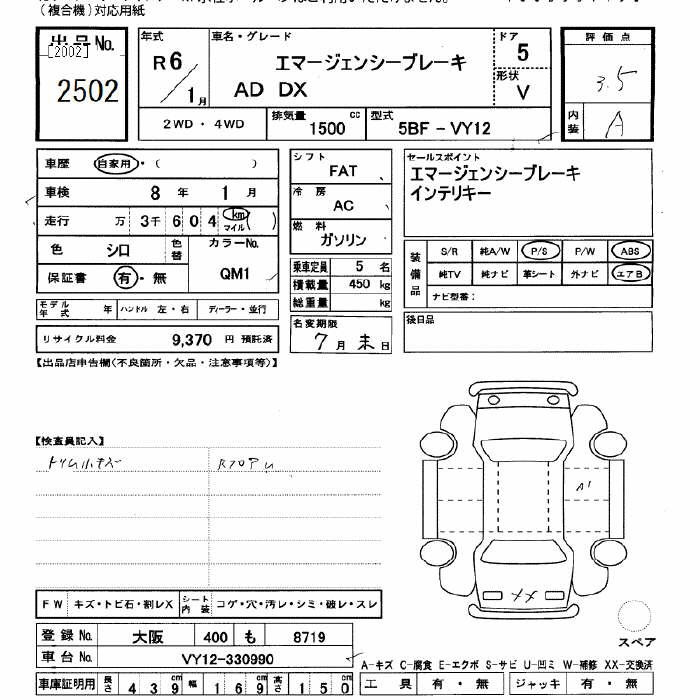 (複合機)対応用紙
出品No.
[2002]
2502
年式
R6/1月
車名・グレード
エマージェンシーブレーキ
AD DX
ドア 5
形状 V
評価点
3.5
内装 A
2WD・4WD
排気量 1500 cc
型式 5BF-VY12
車歴 自家用・( )
車検 8年 1月
走行 万 3千 6 0 4 km マイル ( )
色 シロ 色替
カラーNo. QM1
保証書 有・無
モデル年式 年 ハンドル 左・右 ディーラー・並行
リサイクル料金 9,370 円 預託済
シフト FAT
冷房 AC
燃料 ガソリン
乗車定員 5 名
積載量 450 kg
総重量 kg
名変期限
7月末日
セールスポイント
エマージェンシーブレーキ
インテリキー
装備品
S/R 純A/W P/S P/W ABS
純TV 純ナビ 革シート 外ナビ エアB
ナビ型番:
後日品
【出品店申告欄(不良箇所・欠品・注意事項等)】
【検査員記入】
トリム小キズ
RフロアU
A1
XX
FW キズ・トビ石・割レX シート内装 コゲ・穴・汚レ・シミ・破レ・スレ
登録No. 大阪 400 も 8719
車台No. VY12-330990
車庫証明用 長さ 439cm 幅 169cm 高さ 150cm
スペア
A-キズ C-腐食 E-エクボ S-サビ U-凹ミ W-補修 XX-交換済
工具 有・無 ジャッキ 有・無